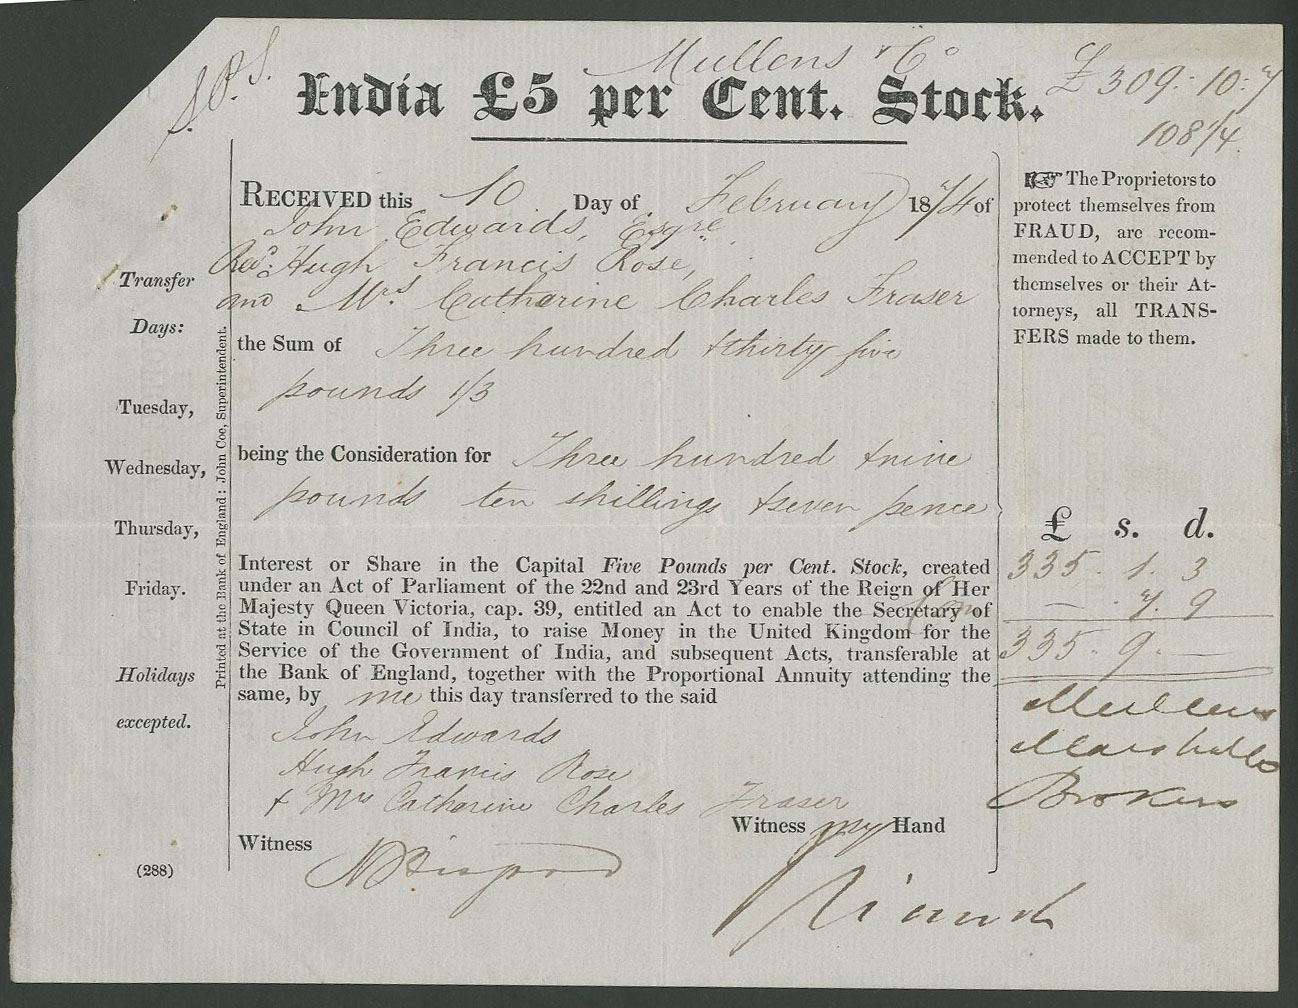 S.P.S.
Mullens & Co
India £5 per Cent. Stock.
£309.10.7
108 1/4
RECEIVED this 10 Day of February 1874 of
John Edwards, Esqre
Revd. Hugh Francis Rose,
and Mrs Catherine Charles Fraser
the Sum of Three hundred & thirty five
pounds 1/3
being the Consideration for Three hundred & nine
pounds ten shillings & seven pence
Interest or Share in the Capital Five Pounds per Cent. Stock, created
under an Act of Parliament of the 22nd and 23rd Years of the Reign of Her
Majesty Queen Victoria, cap. 39, entitled an Act to enable the Secretary of
State in Council of India, to raise Money in the United Kingdom for the
Service of the Government of India, and subsequent Acts, transferable at
the Bank of England, together with the Proportional Annuity attending the
same, by me this day transferred to the said
John Edwards
Hugh Francis Rose
& Mrs Catherine Charles Fraser
Witness my Hand
Witness
Transfer
Days:
Tuesday,
Wednesday,
Thursday,
Friday.
Holidays
excepted.
(288)
Printed at the Bank of England: John Coe, Superintendent.
☞ The Proprietors to
protect themselves from
FRAUD, are recom-
mended to ACCEPT by
themselves or their At-
torneys, all TRANS-
FERS made to them.
£ s. d.
335 . 1 . 3
— . 7 . 9
335 . 9 . —
Mullens
Marshall &
Brokers